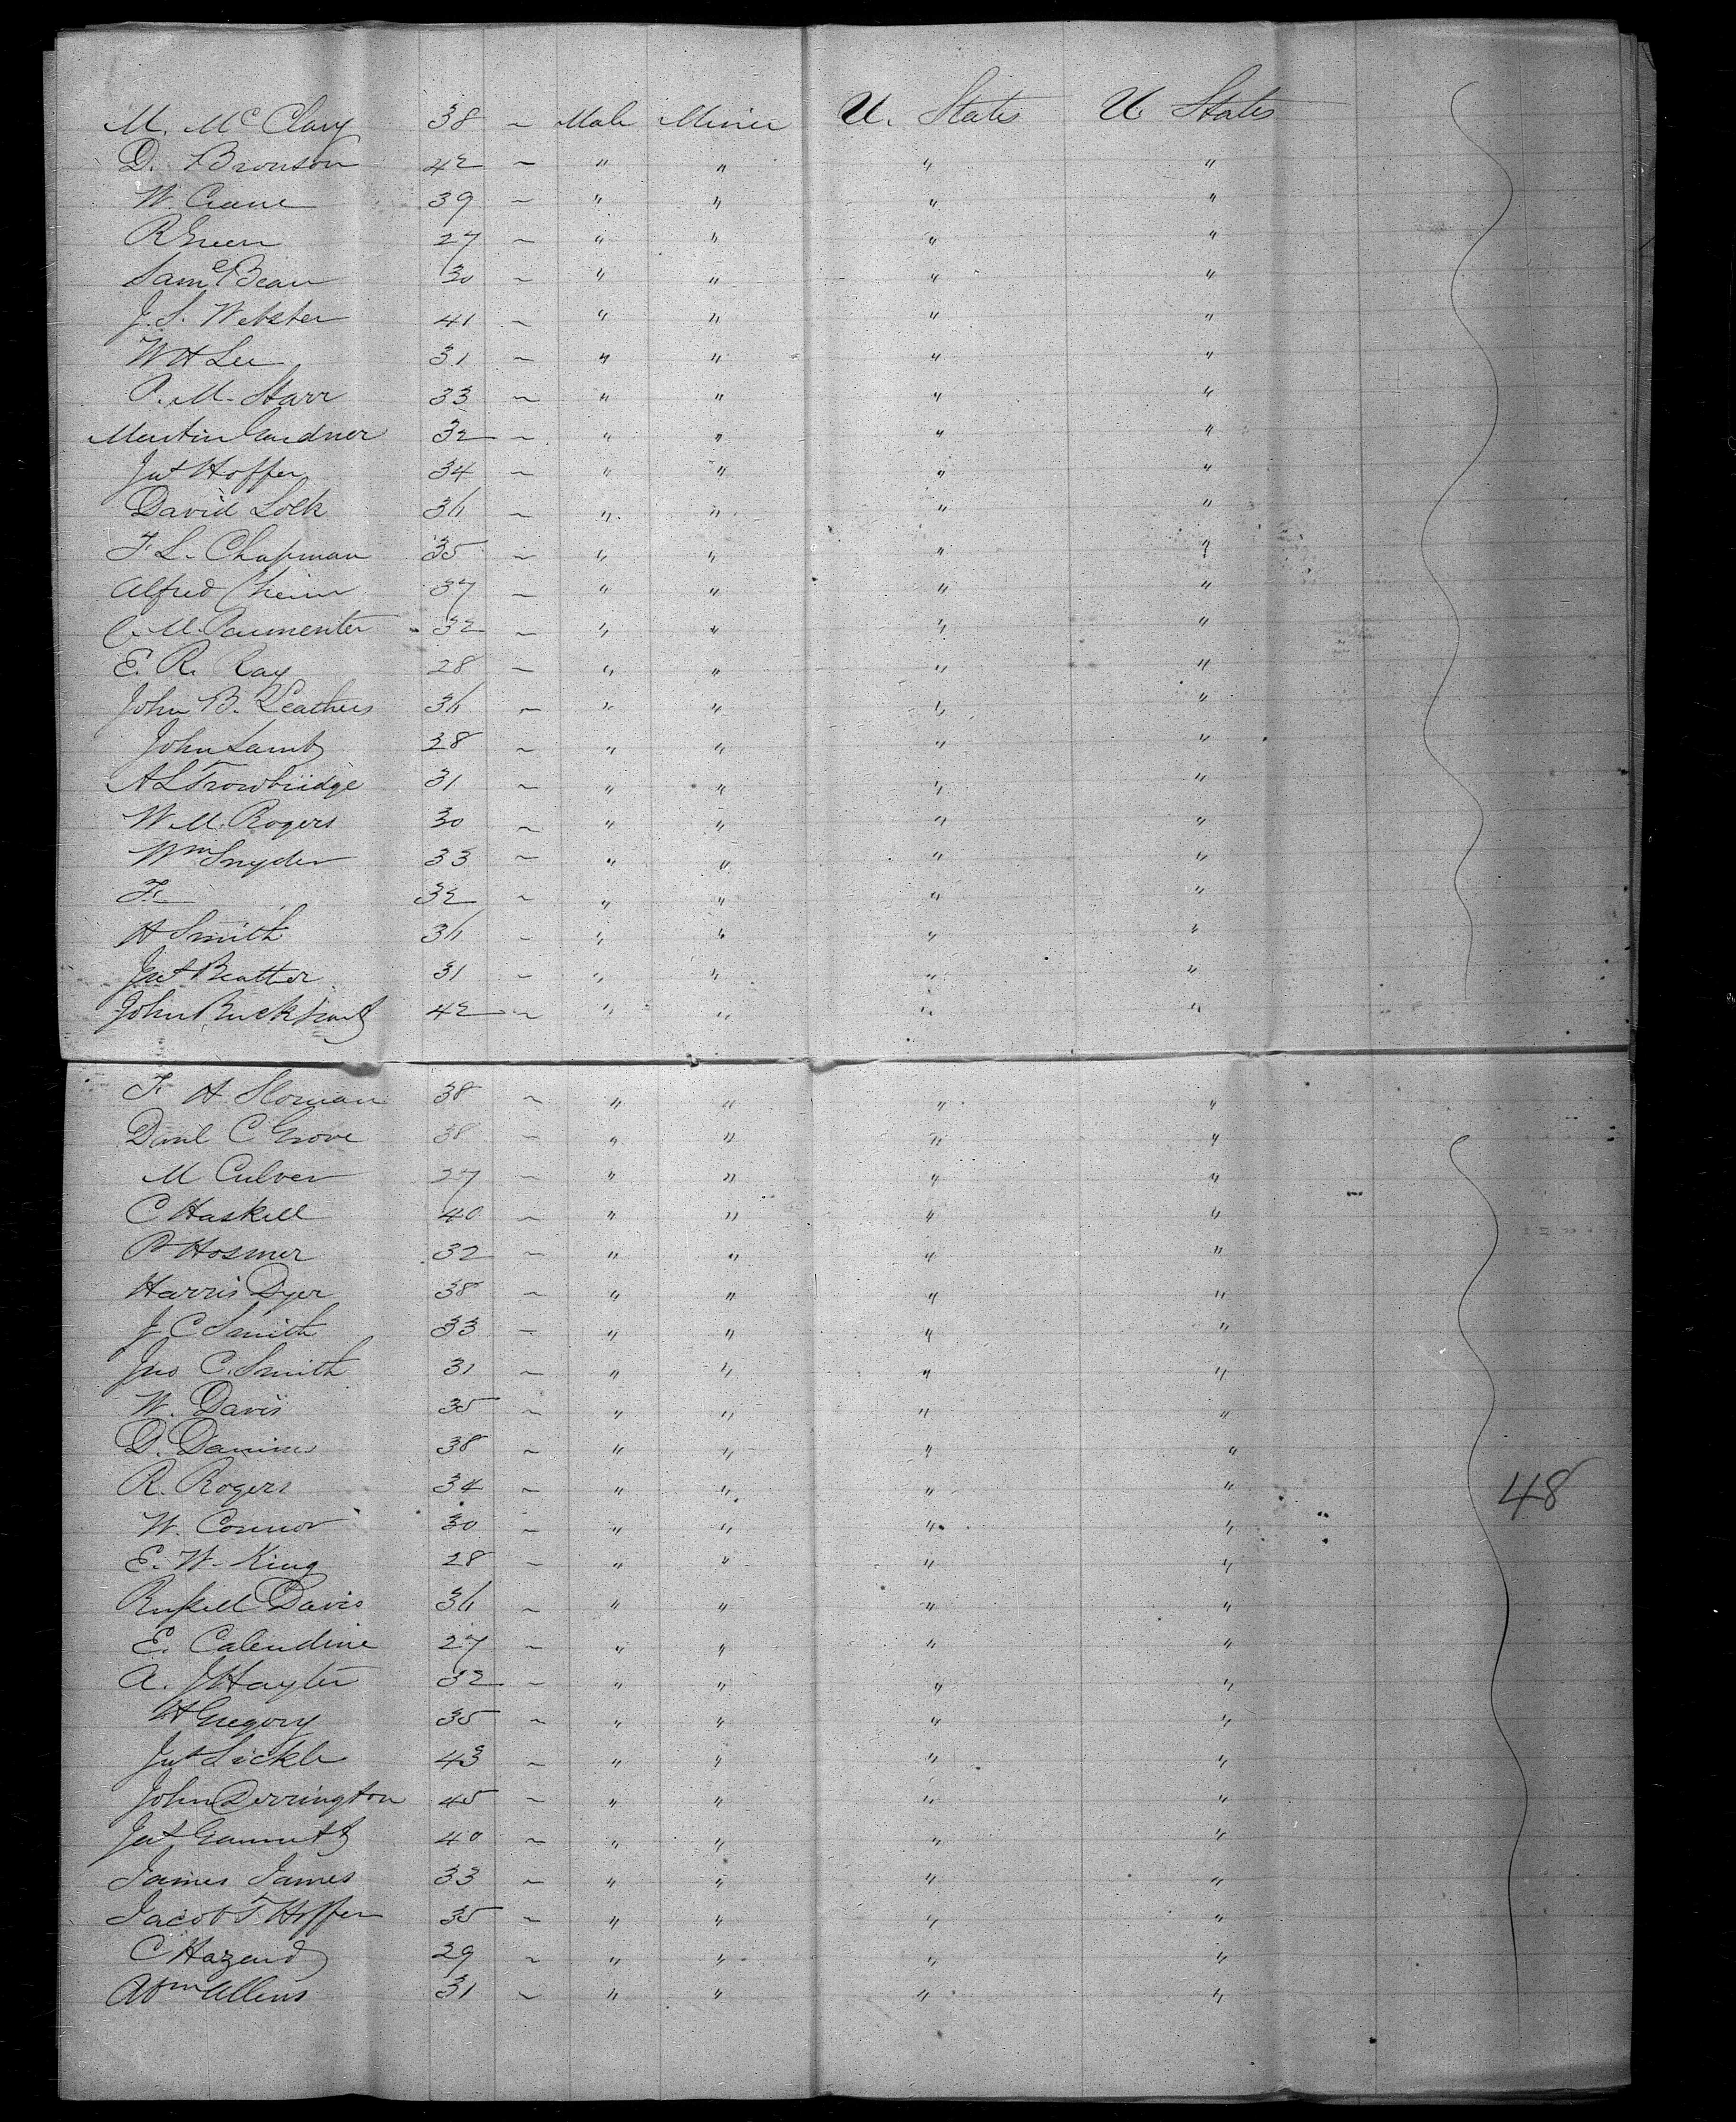 M. McClary 38 ~ Male Miner U. States U. States
D. Bronson 42 ~ " " " "
W. Crane 39 ~ " " " "
R Green 27 ~ " " " "
Saml Bean 30 ~ " " " "
J. S. Webster 41 ~ " " " "
W H Lee 31 ~ " " " "
P. M. Starr 33 ~ " " " "
Martin Gardner 32 ~ " " " "
Jas Hoffer 34 ~ " " " "
David Lock 36 ~ " " " "
F. L. Chapman 35 ~ " " " "
Alfred 37 ~ " " " "
C. M. Parmenter 32 ~ " " " "
E. R. Ray 28 ~ " " " "
John B. Leathers 36 ~ " " " "
John Lamb 28 ~ " " " "
A L Trowbridge 31 ~ " " " "
W. M. Rogers 30 ~ " " " "
Wm Snyder 33 ~ " " " "
F. 32 ~ " " " "
H Smith 36 ~ " " " "
Jas 31 ~ " " " "
John 42 ~ " " " "
F. H. Sloman 38 ~ " " " "
Danl C Grove 38 ~ " " " "
M Culver 27 ~ " " " "
C Haskell 40 ~ " " " "
P Hosmer 32 ~ " " " "
Harris Dyer 38 ~ " " " "
J C Smith 33 ~ " " " "
Jno C. Smith 31 ~ " " " "
W. Davis 35 ~ " " " "
D. 38 ~ " " " "
R. Rogers 34 ~ " " " "
48
W. Connor 30 ~ " " " "
E. W. King 28 ~ " " " "
Russell Davis 36 ~ " " " "
E. Calendine 27 ~ " " " "
A. J Hayter 32 ~ " " " "
H Gregory 35 ~ " " " "
Jas Sickle 43 ~ " " " "
John Derrington 45 ~ " " " "
Jas 40 ~ " " " "
James James 33 ~ " " " "
Jacob T. Hoffer 35 ~ " " " "
C Hazard 29 ~ " " " "
Abm Allens 31 ~ " " " "